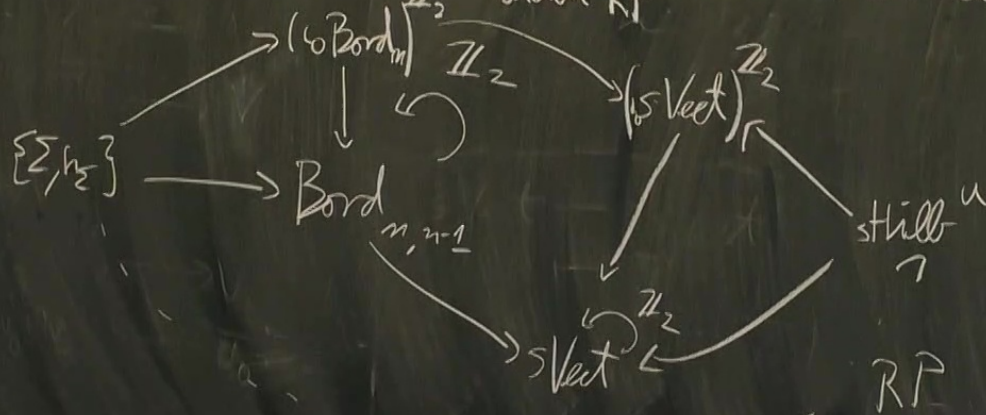 (ι₀Bord_n)^{ℤ₂}
ℤ₂
(ι₀sVect)^{ℤ₂}
{Σ, h_Σ}
Bord_{n, n-1}
sHilb
ℤ₂
sVect
RP